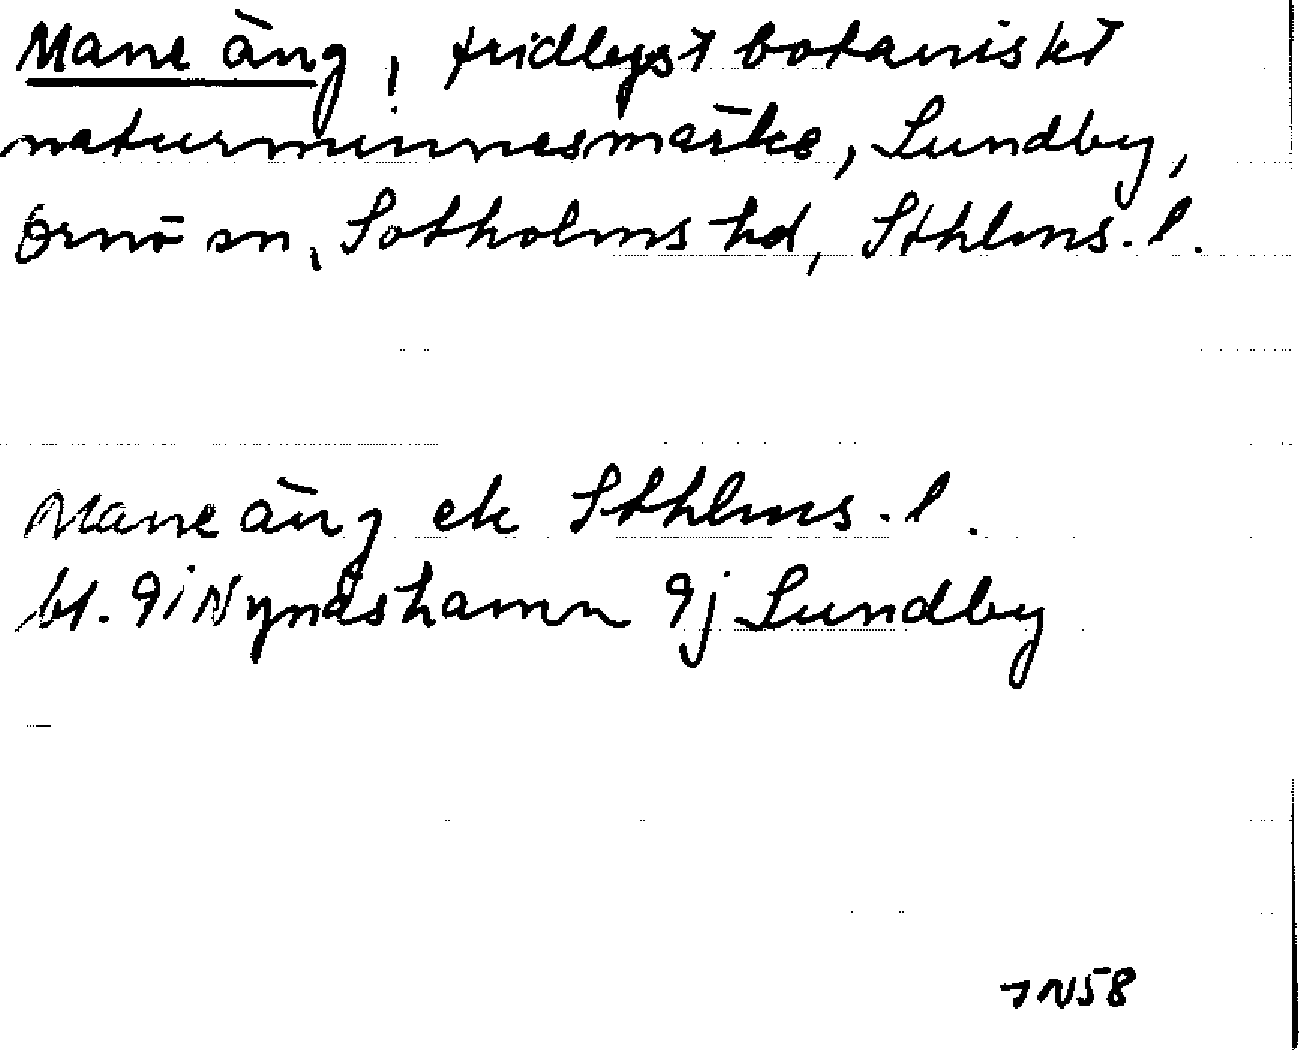 Mane äng, fridlyst botaniskt
naturminnesmärke, Lundby,
Ornö sn, Sotholms hd, Sthlms. l.
Mane äng ek Sthlms. l.
bl. 9i Nynäshamn 9j Lundby